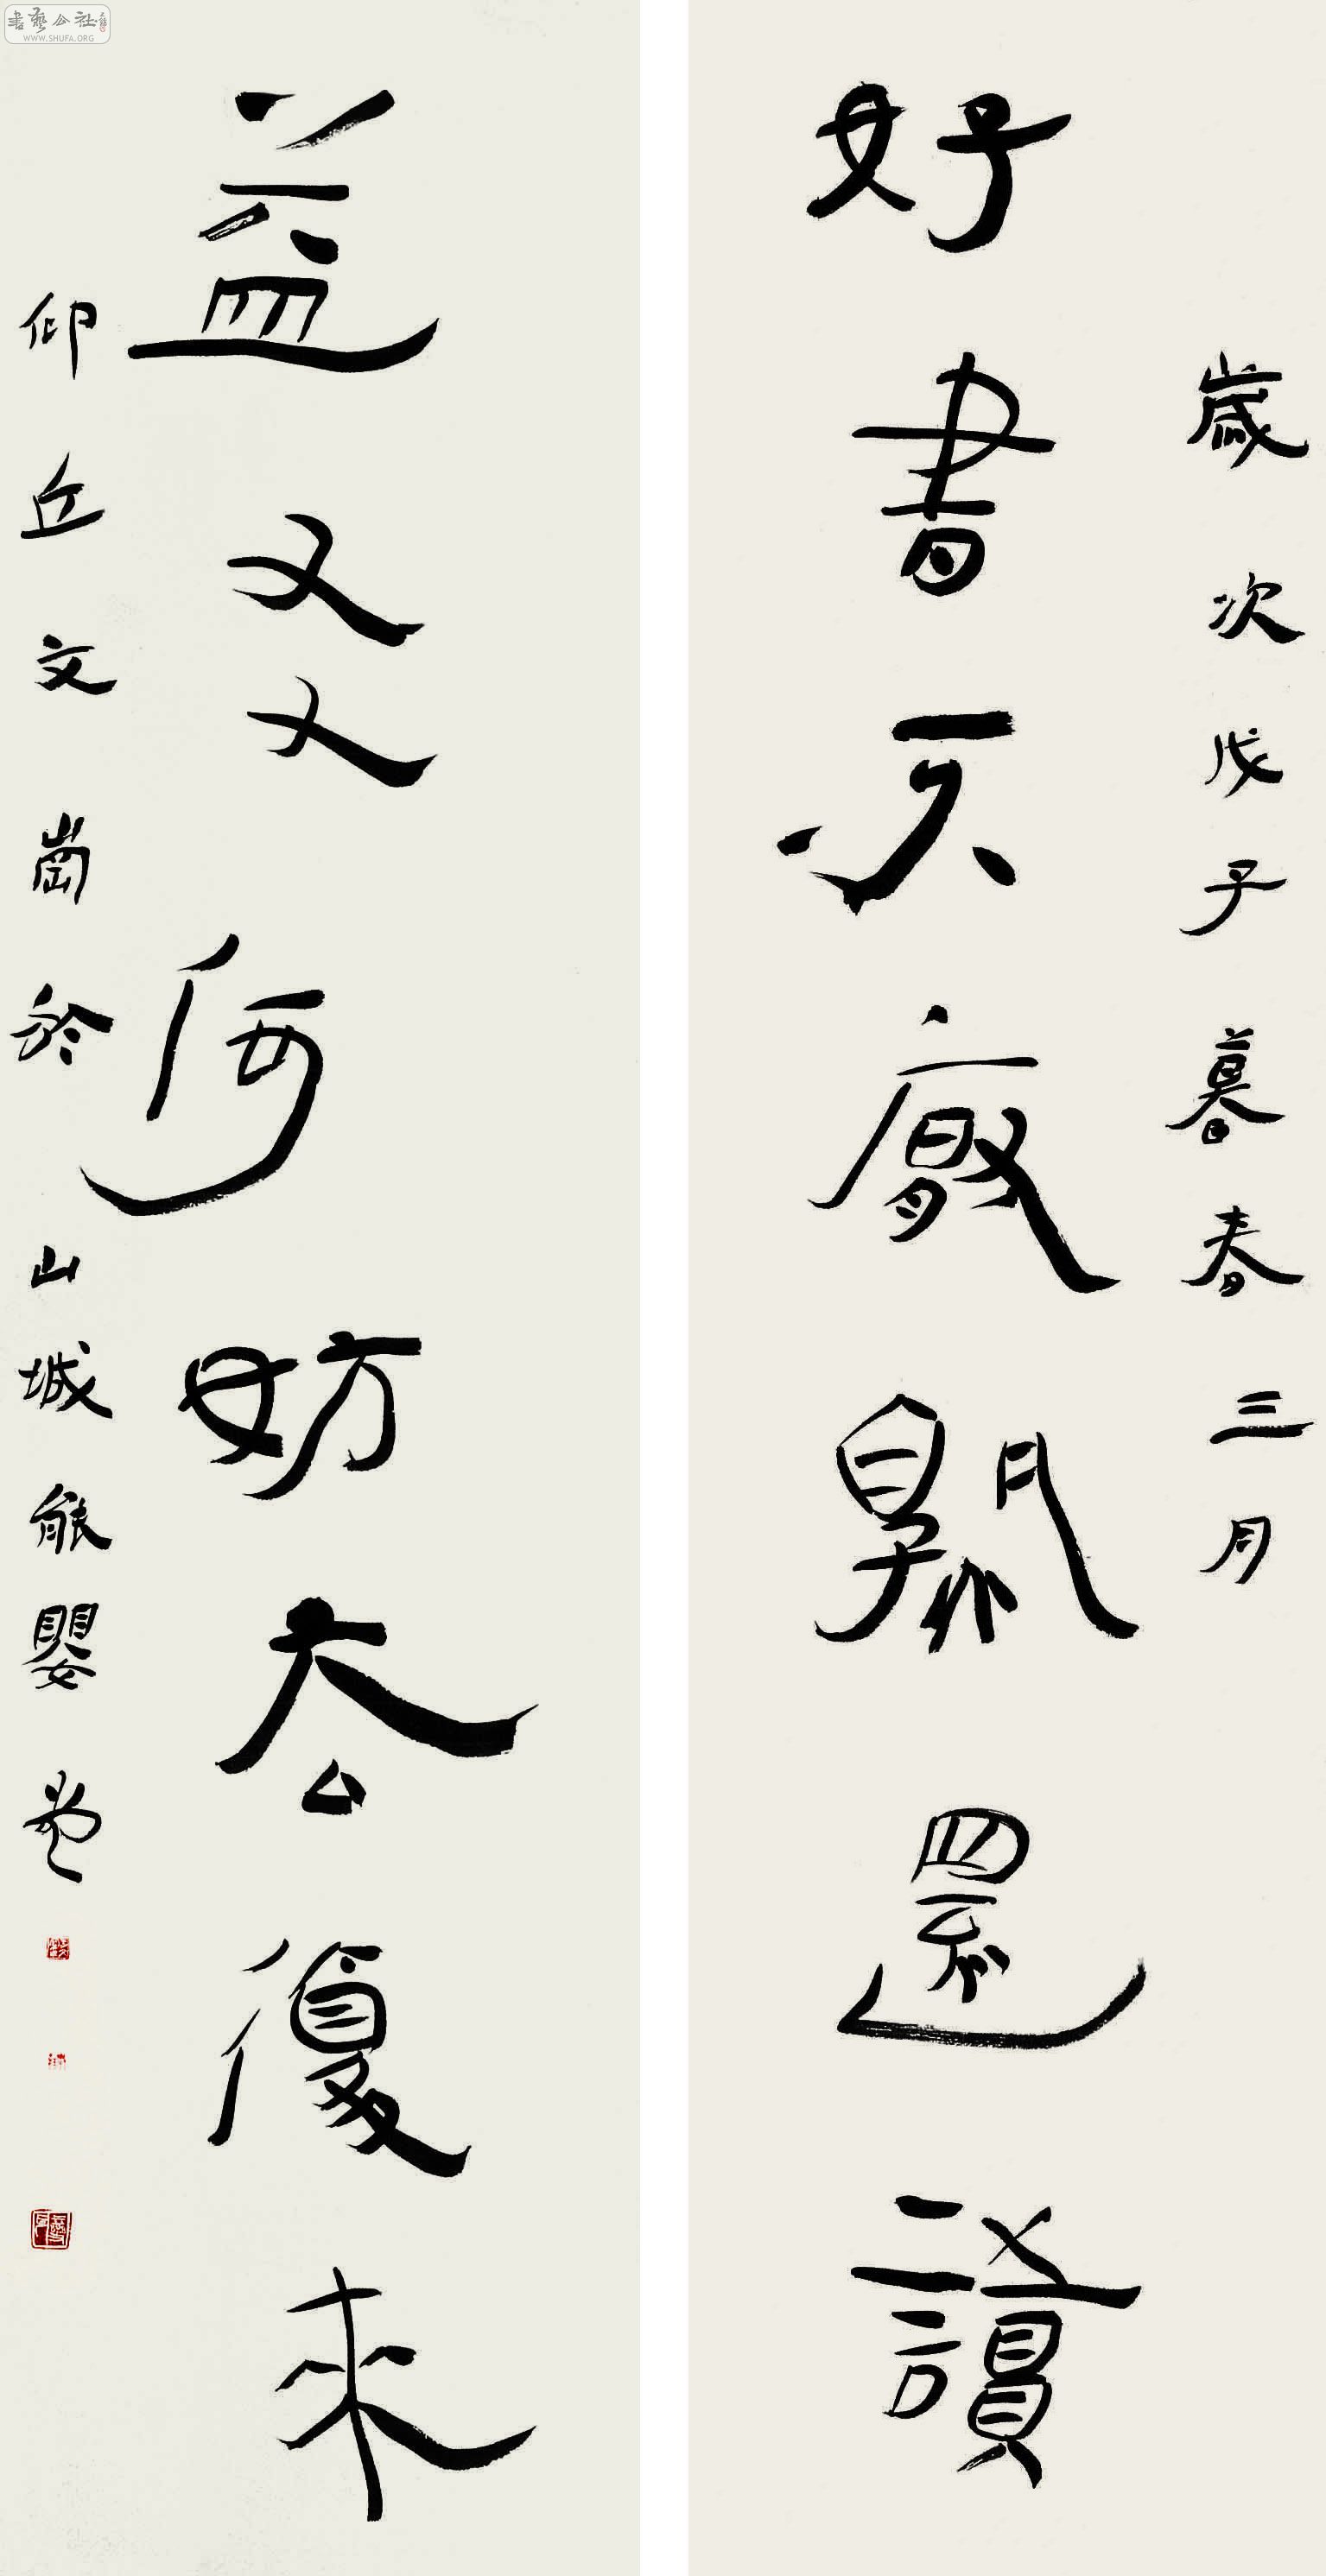 歲次戊子暮春三月
好書不厭觀還讀
益友何妨去復來
仰丘文崗於山城能嬰堂
書藝公社
WWW.SHUFA.ORG